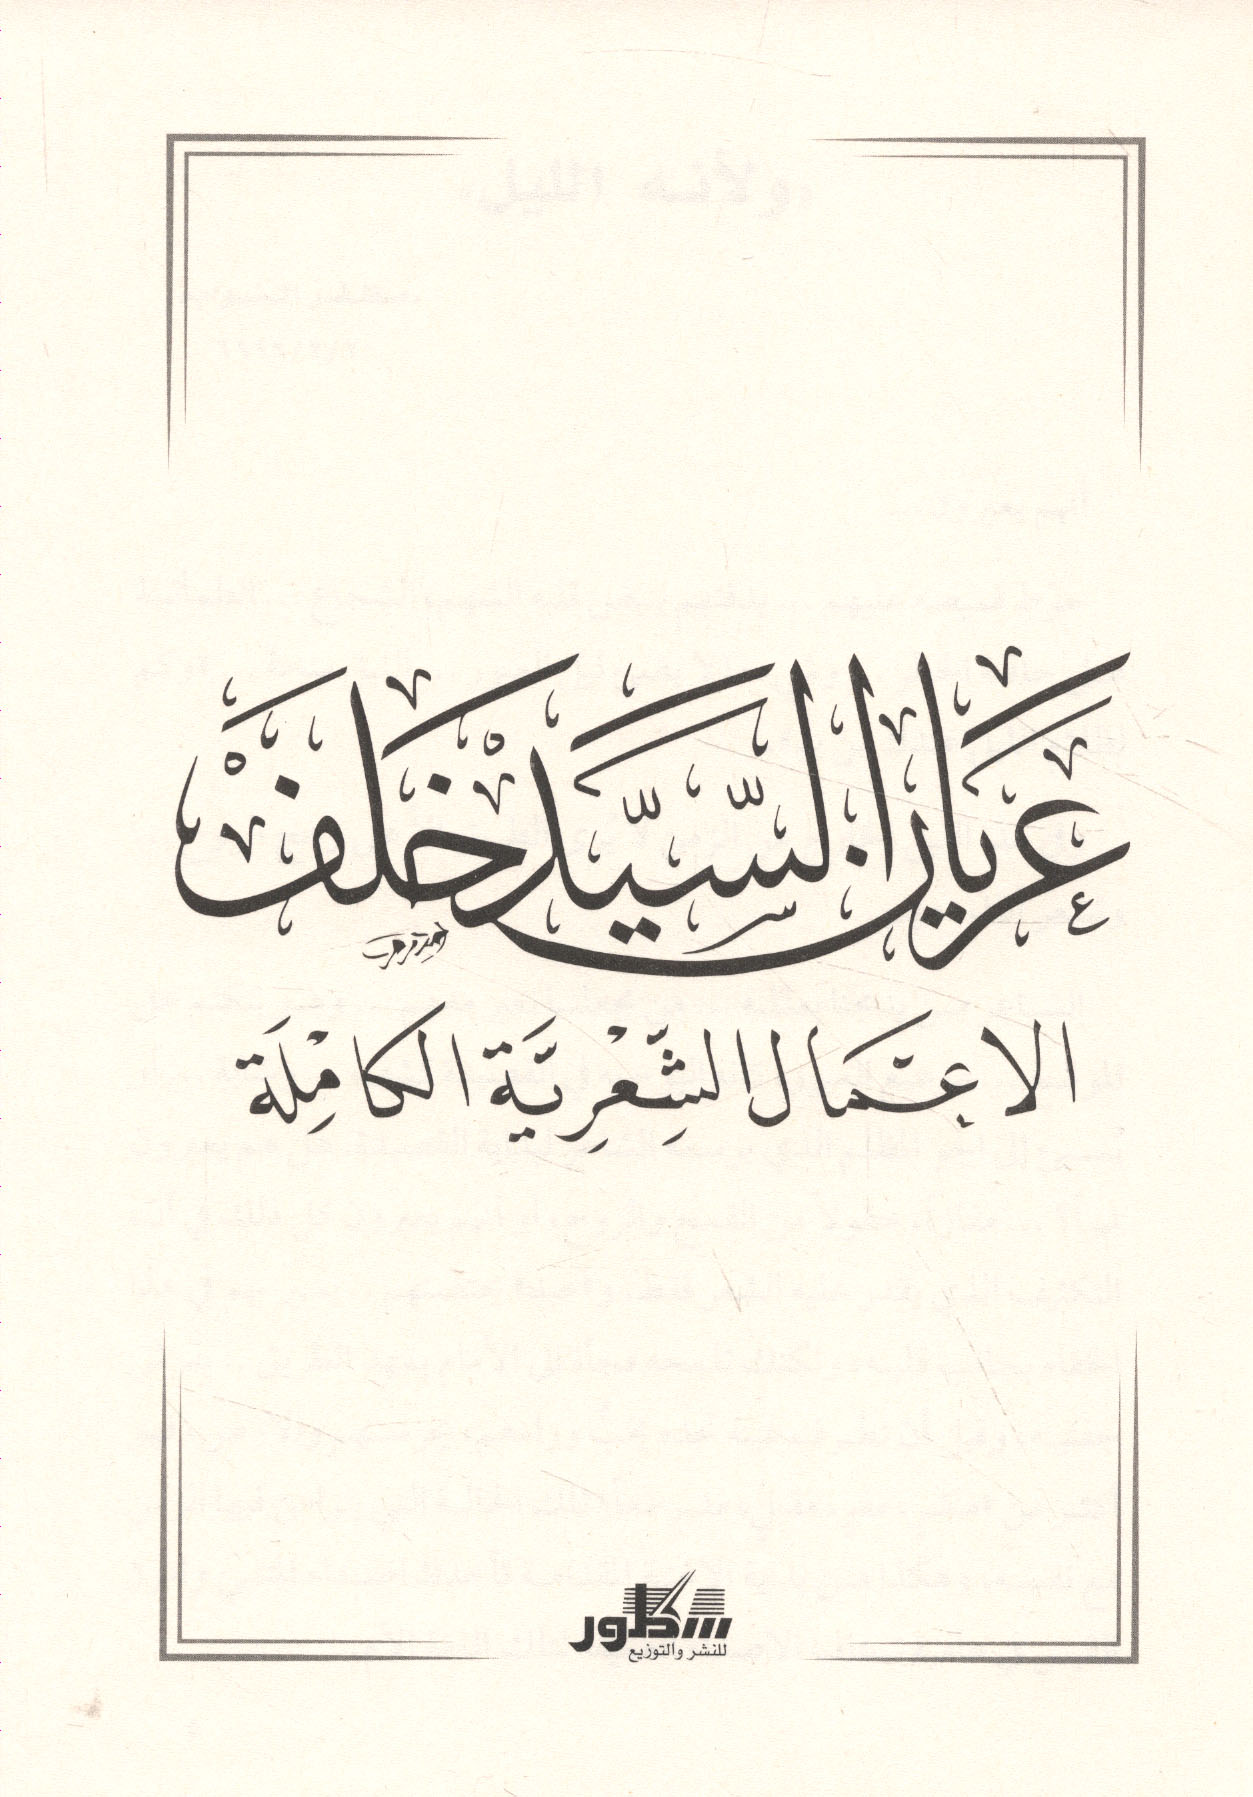 عريان السَّيِّد خَلَفْ
الاعمَال الشِّعْرِيَّة الكامِلَة
سطور
للنشر والتوزيع